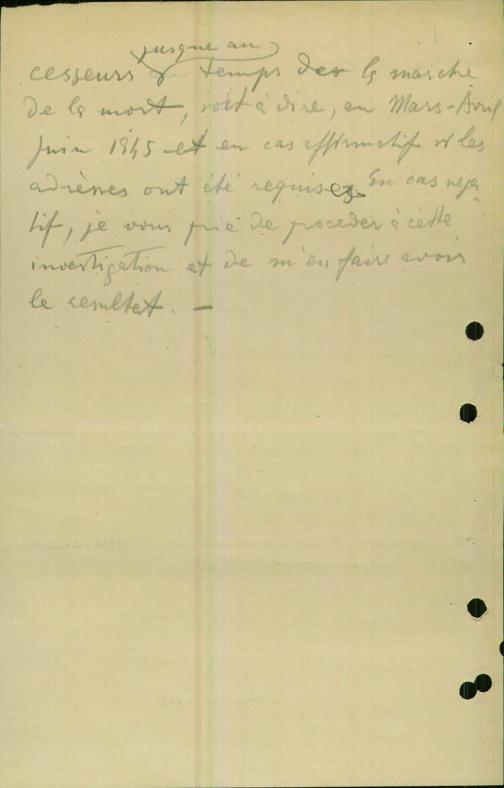 jusque au
cesseurs temps de la marche
de la mort, soit à dire, en Mars-Avril
Juin 1945 et en cas affirmatif si les
adresses ont été requises. En cas néga-
tif, je vous prie de proceder à cette
investigation et de m'en faire avoir
le resultat. —